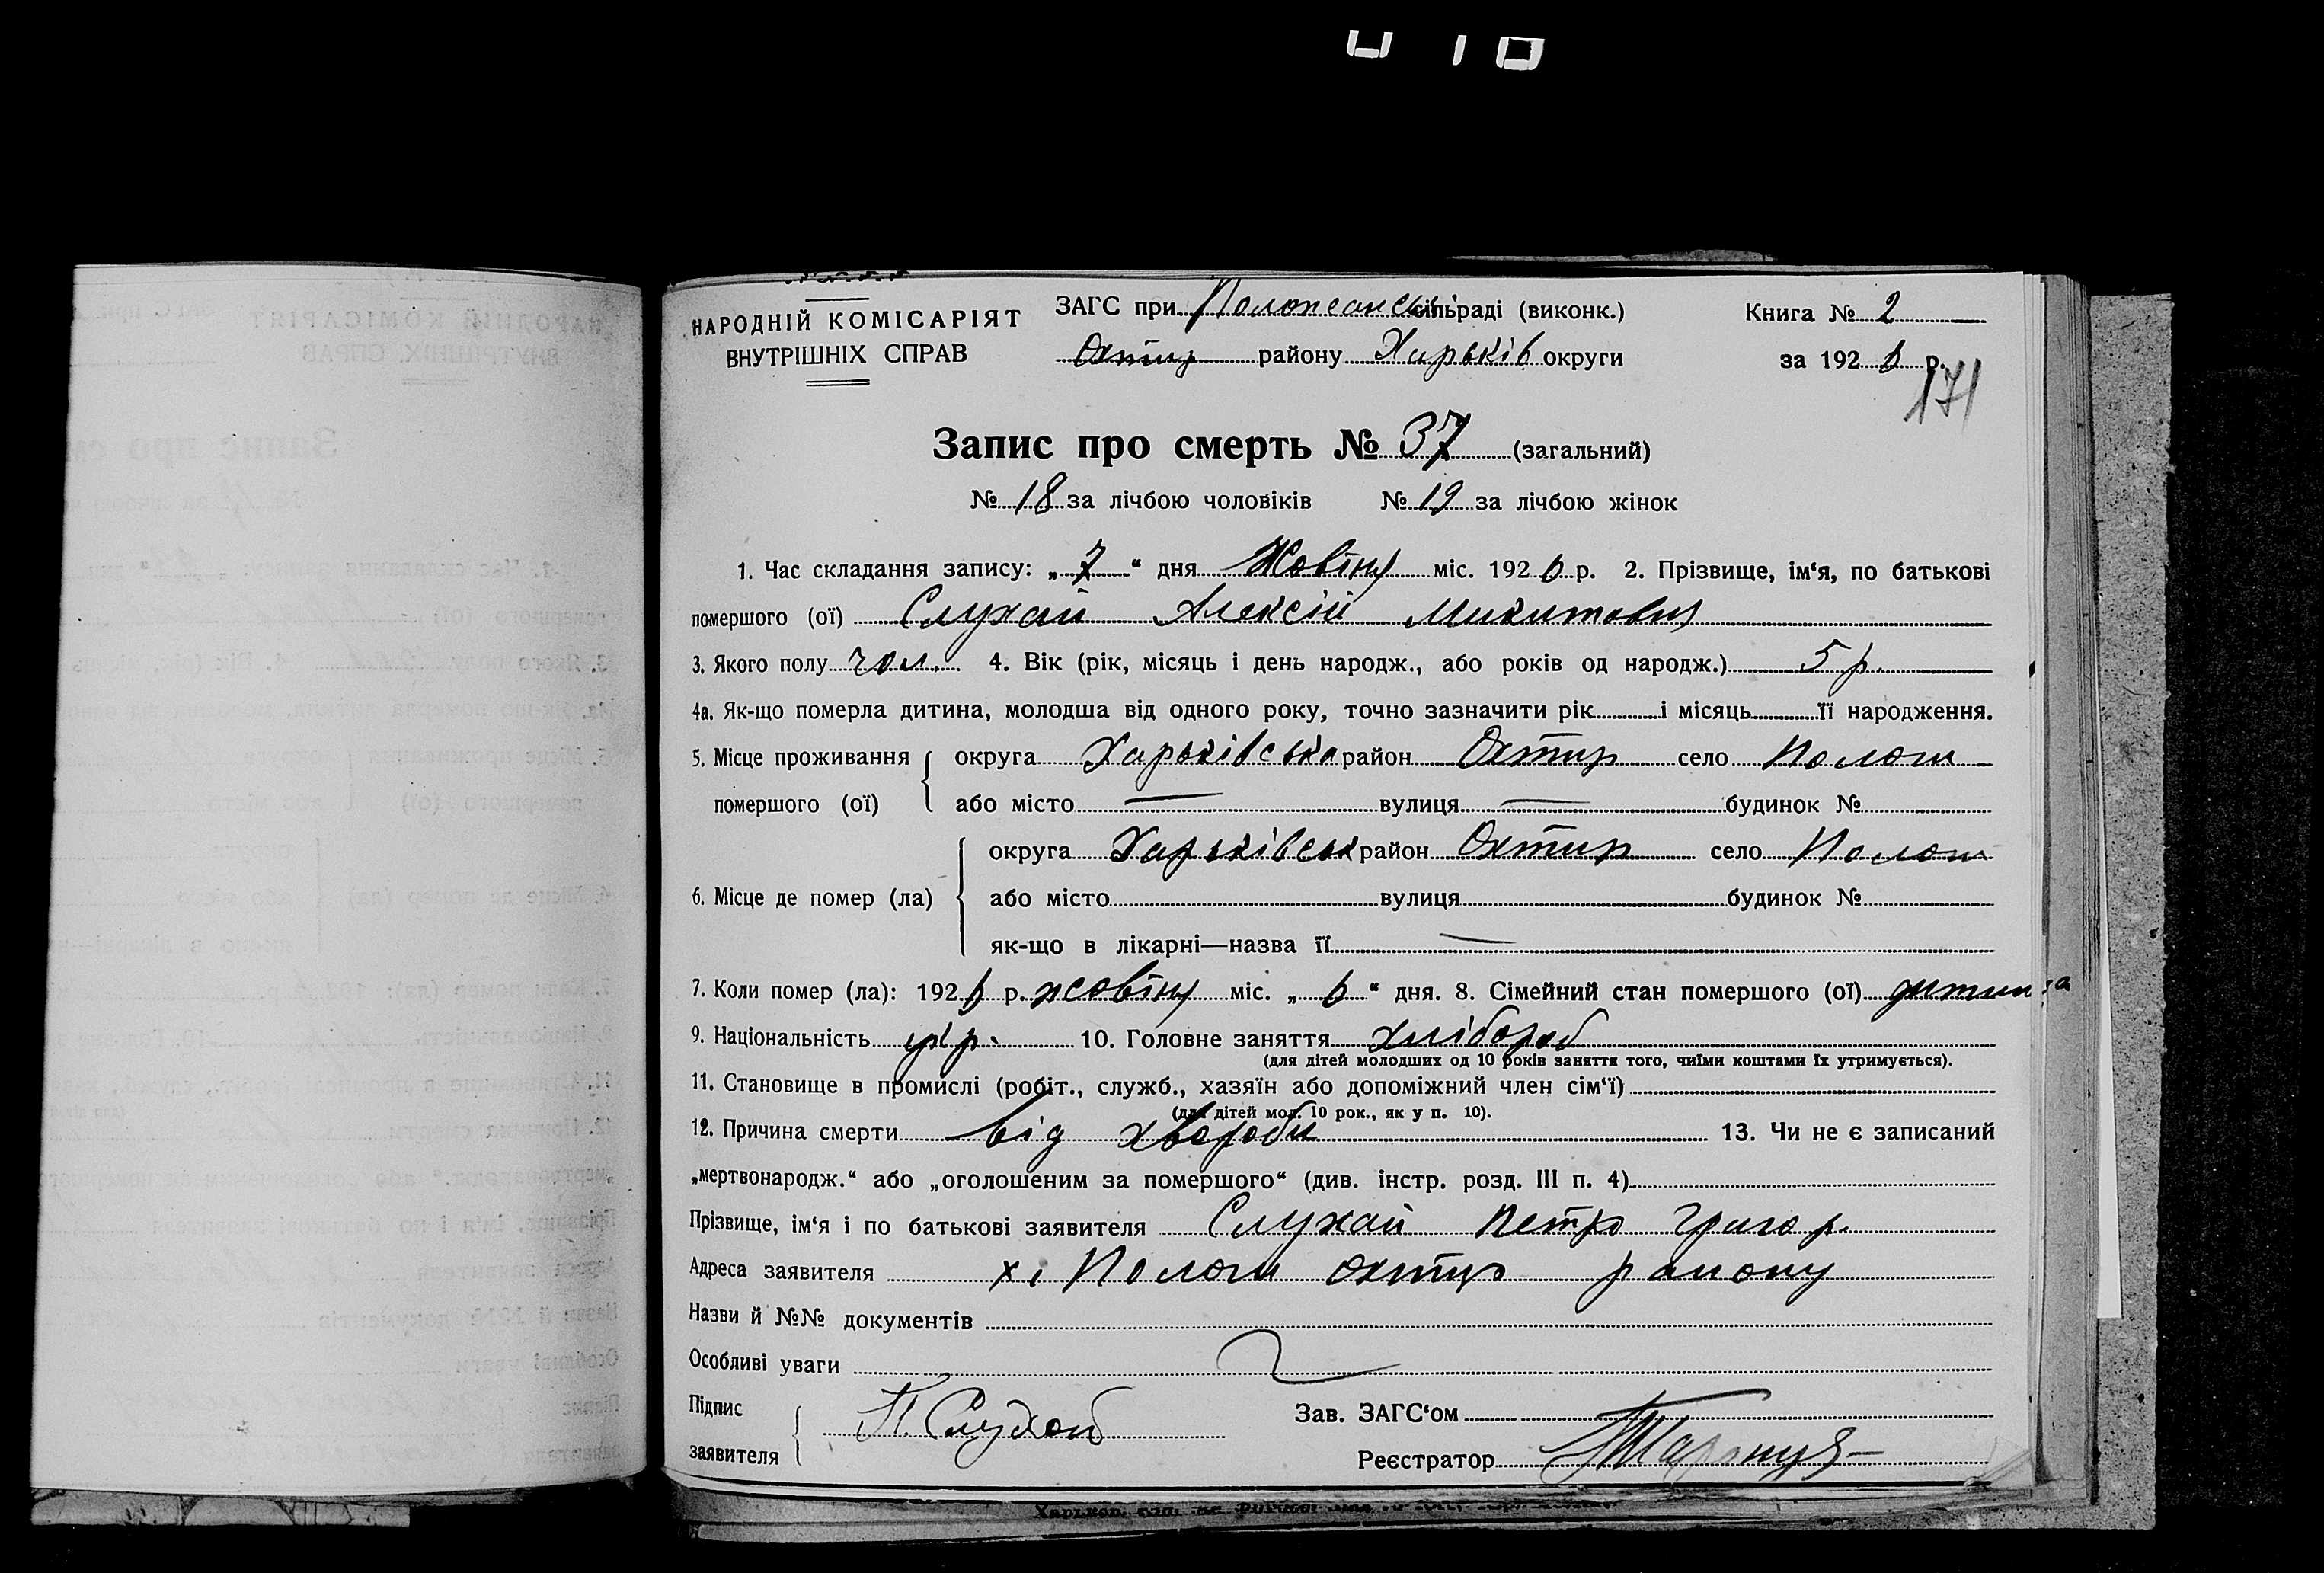 НАРОДНІЙ КОМІСАРІЯТ
ВНУТРІШНІХ СПРАВ
ЗАГС при сільраді (виконк.)
Охтир району Харьків округи
Книга № 2
за 192 6 р.
171
Запис про смерть № 37 (загальний)
№ 18 за лічбою чоловіків № 19 за лічбою жінок
1. Час складання запису: „ 7 “ дня Жовтня міс. 192 6 р. 2. Прізвище, ім‘я, по батькові
помершого (ої) Слухай Алексій Микитович
3. Якого полу чол. 4. Вік (рік, місяць і день народж., або років од народж.) 5 р.
4а. Як-що померла дитина, молодша від одного року, точно зазначити рік і місяць її народження.
5. Місце проживання помершого (ої) округа Харьківська район Охтир село Пологи
або місто — вулиця — будинок №
6. Місце де помер (ла) округа Харьківськ район Охтир село Пологи
або місто вулиця будинок №
як-що в лікарні—назва її —
7. Коли помер (ла): 192 6 р. жовтня міс. „ 6 “ дня. 8. Сімейний стан помершого (ої) дитина
9. Національність укр. 10. Головне заняття хлібороб
(для дітей молодших од 10 років заняття того, чиїми коштами їх утримується).
11. Становище в промислі (робіт., служб., хазяїн або допоміжний член сім‘ї)
(для дітей мол. 10 рок., як у п. 10).
12. Причина смерти від хвороби 13. Чи не є записаний
„мертвонародж.“ або „оголошеним за помершого“ (див. інстр. розд. III п. 4)
Прізвище, ім‘я і по батькові заявителя Слухай Петро Григор.
Адреса заявителя х. Пологи Охтир району
Назви й №№ документів
Особливі уваги
Підпис заявителя П. Слухай
Зав. ЗАГС‘ом
Реєстратор